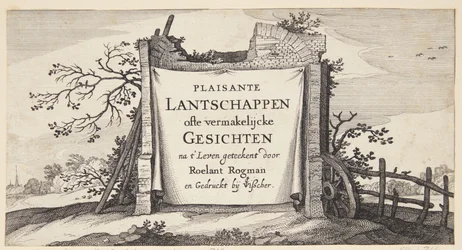 PLAISANTE
LANTSCHAPPEN
ofte vermakelijcke
GESICHTEN
na t' Leven geteekent door
Roelant Rogman
en Gedruckt bij Visscher.